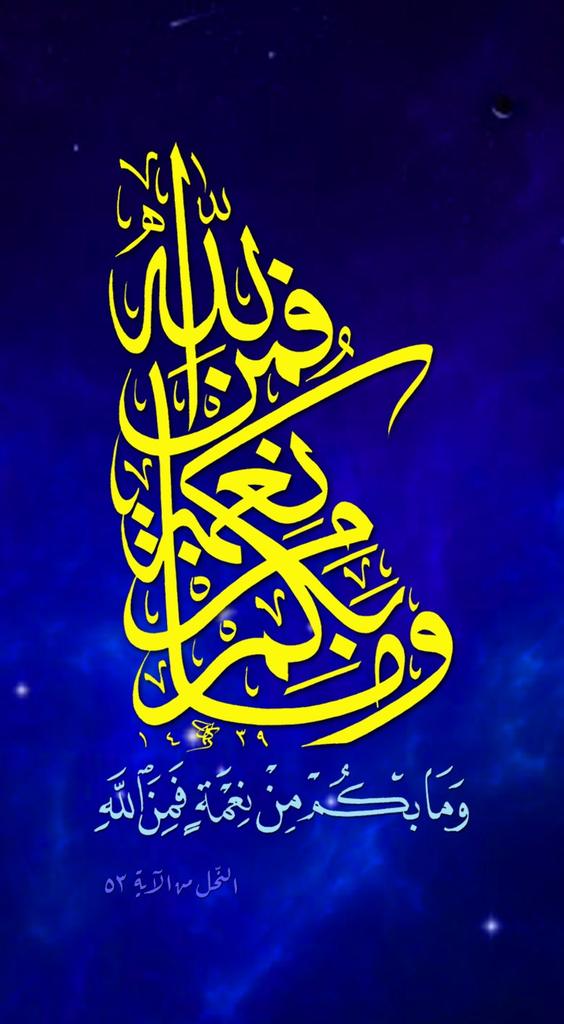 وما بكم من نعمة فمن الله
١٤ ٣٩
وَمَا بِكُم مِّن نِّعْمَةٍ فَمِنَ ٱللَّهِ
النحل من الآية ٥٣